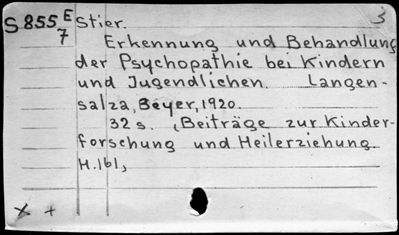 3
S 855 E Stier.
7 Erkennung und Behandlung
der Psychopathie bei Kindern
und Jugendlichen. Langen-
salza, Beyer, 1920.
32 s. (Beiträge zur Kinder-
forschung und Heilerziehung
H.161,
x +